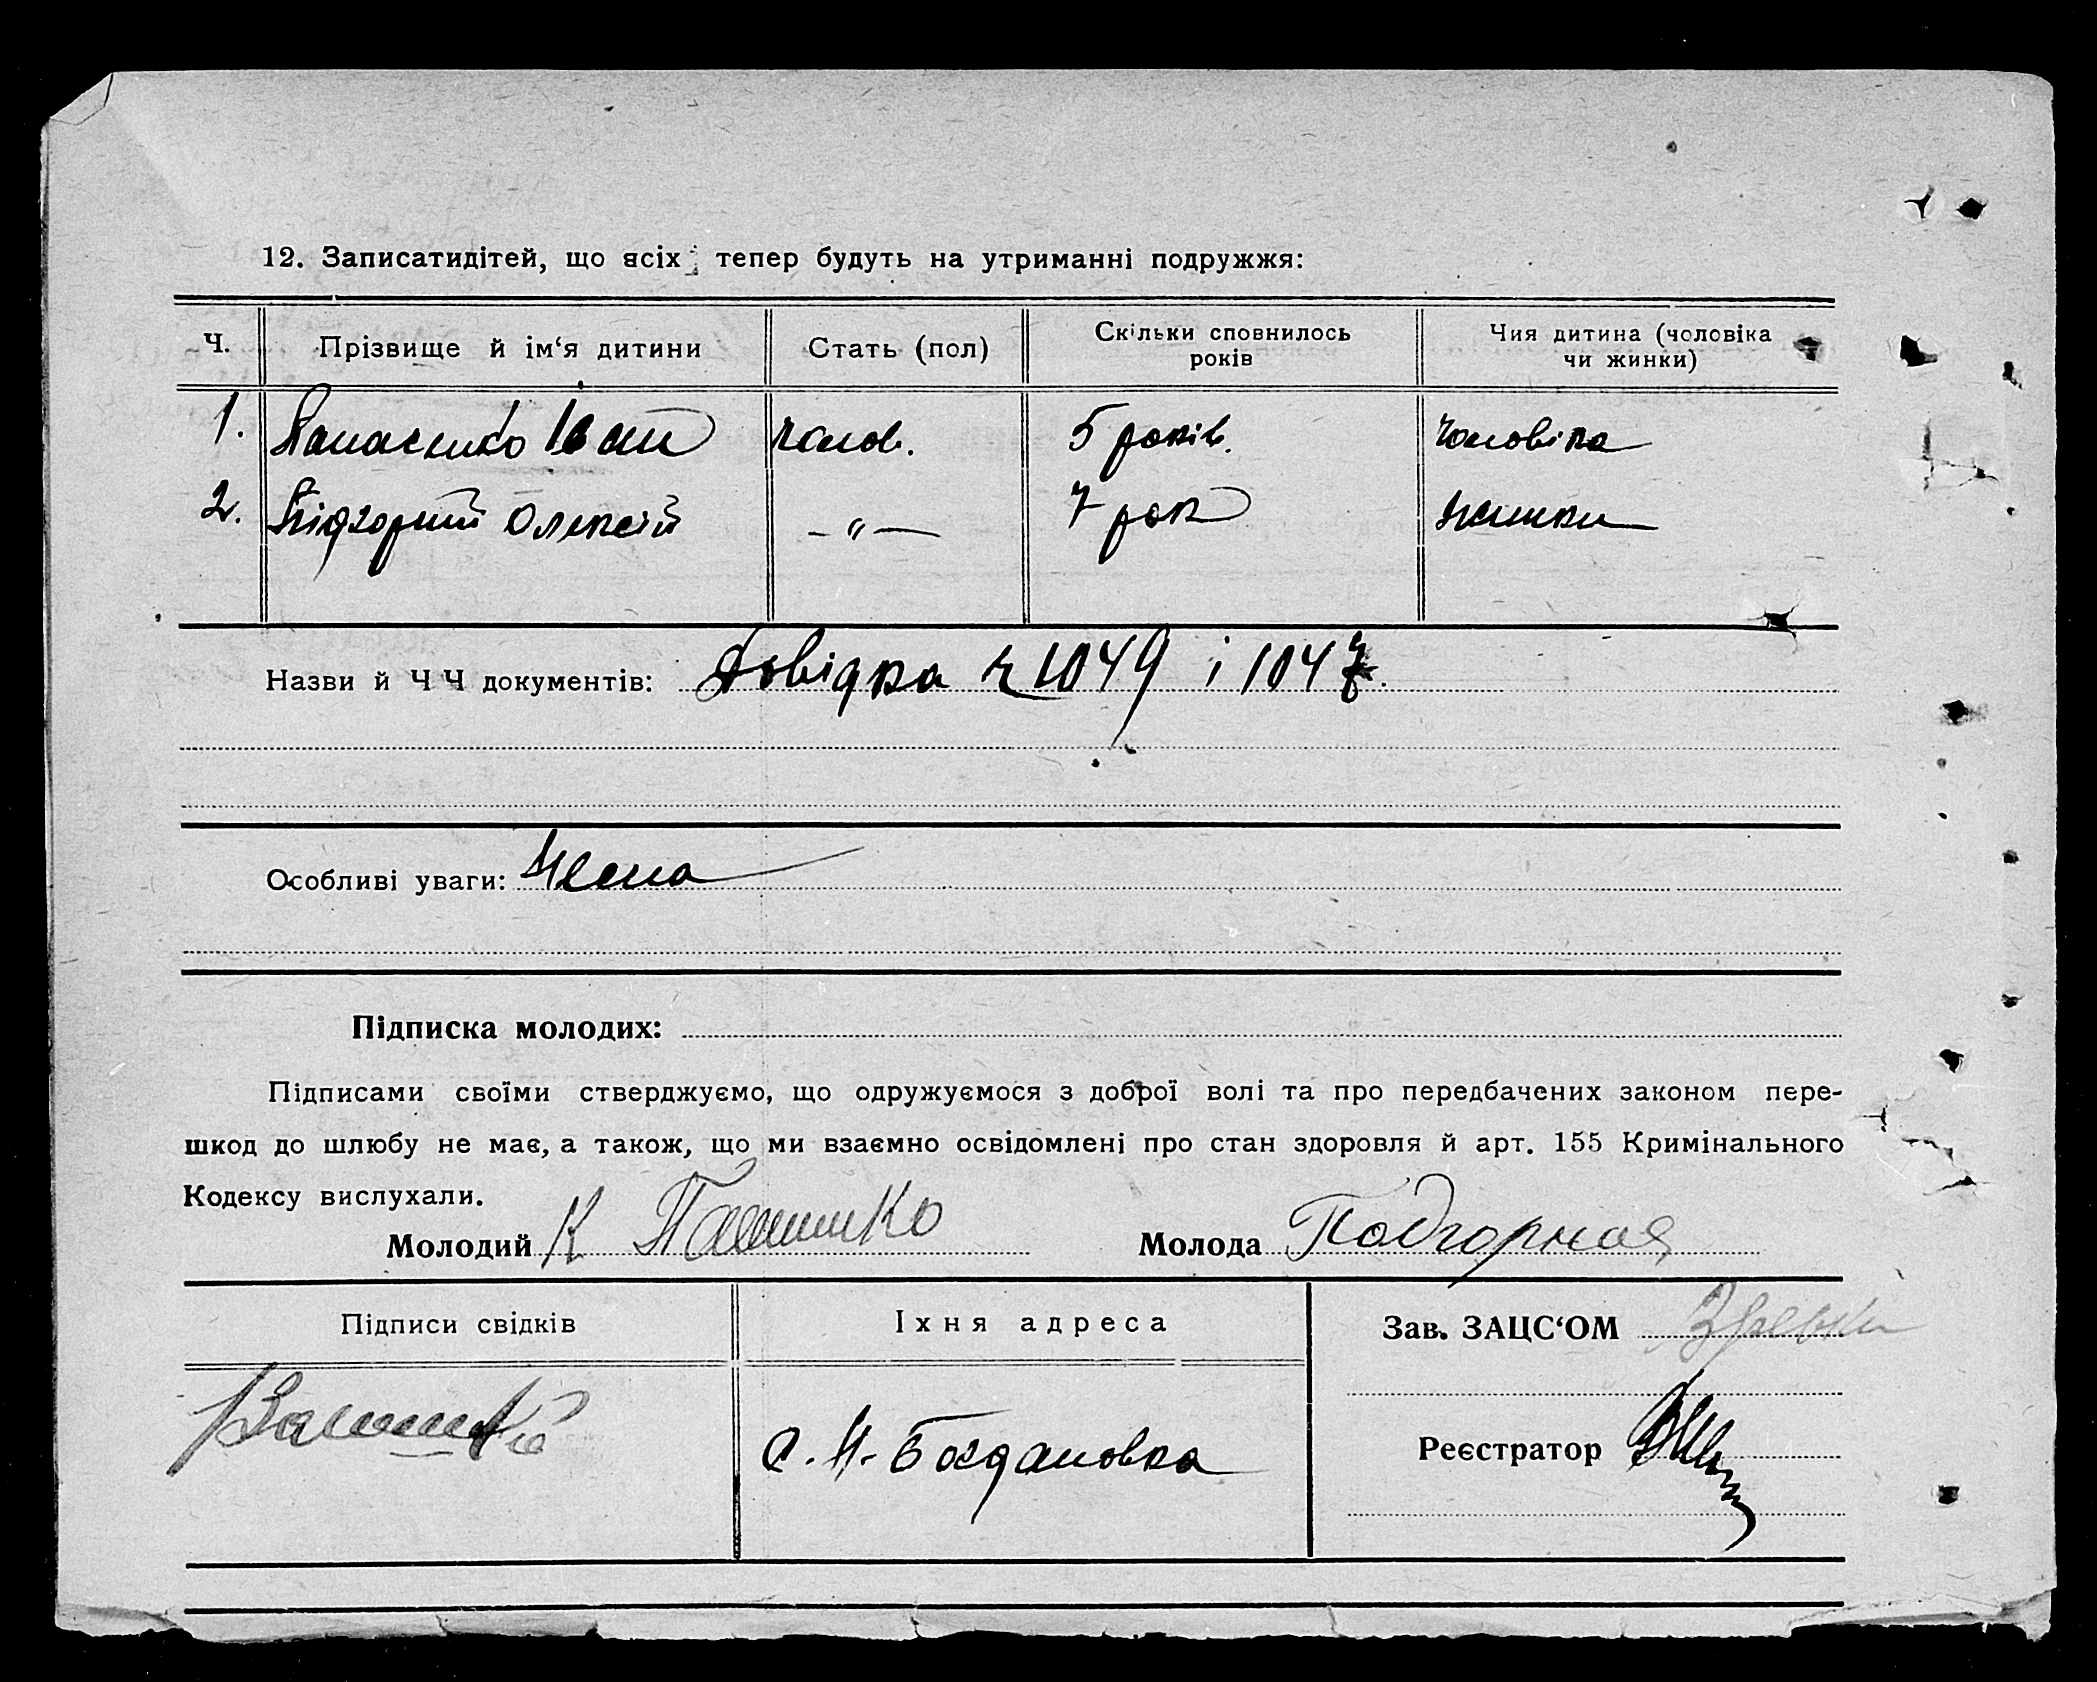 12. Записатидітей, що всіх тепер будуть на утриманні подружжя:
Ч. Прізвище й ім‘я дитини Стать (пол) Скільки сповнилось років Чия дитина (чоловіка чи жинки)
1. Панасенко Іван чолов. 5 років. чоловіка
2. Підгорний Олексій —„— 7 рок жинки
Назви й ЧЧ документів: Довідка ч 1049 і 1047.
Особливі уваги: Нема
Підписка молодих:
Підписами своїми стверджуємо, що одружуємося з доброї волі та про передбачених законом пере-
шкод до шлюбу не має, а також, що ми взаємно освідомлені про стан здоровля й арт. 155 Кримінального
Кодексу вислухали.
Молодий К Молода Подгорная
Підписи свідків Іхня адреса Зав. ЗАЦС‘ОМ
с. Н-Богдановка
Реєстратор